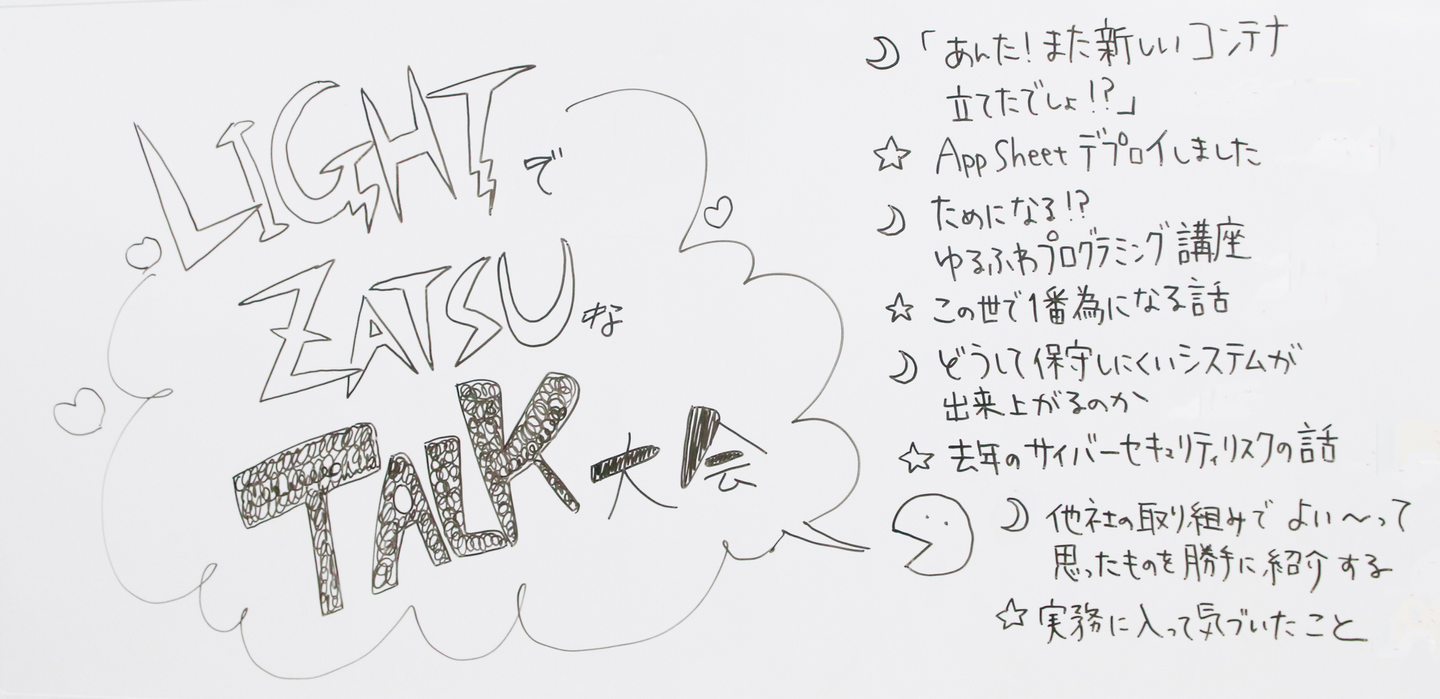 LIGHTで
ZATSUな
TALK大会
「あんた！また新しいコンテナ
立てたでしょ!?」
App Sheet デプロイしました
ためになる!?
ゆるふわプログラミング講座
この世で1番為になる話
どうして保守しにくいシステムが
出来上がるのか
去年のサイバーセキュリティリスクの話
他社の取り組みで よい〜って
思ったものを勝手に紹介する
実務に入って気づいたこと